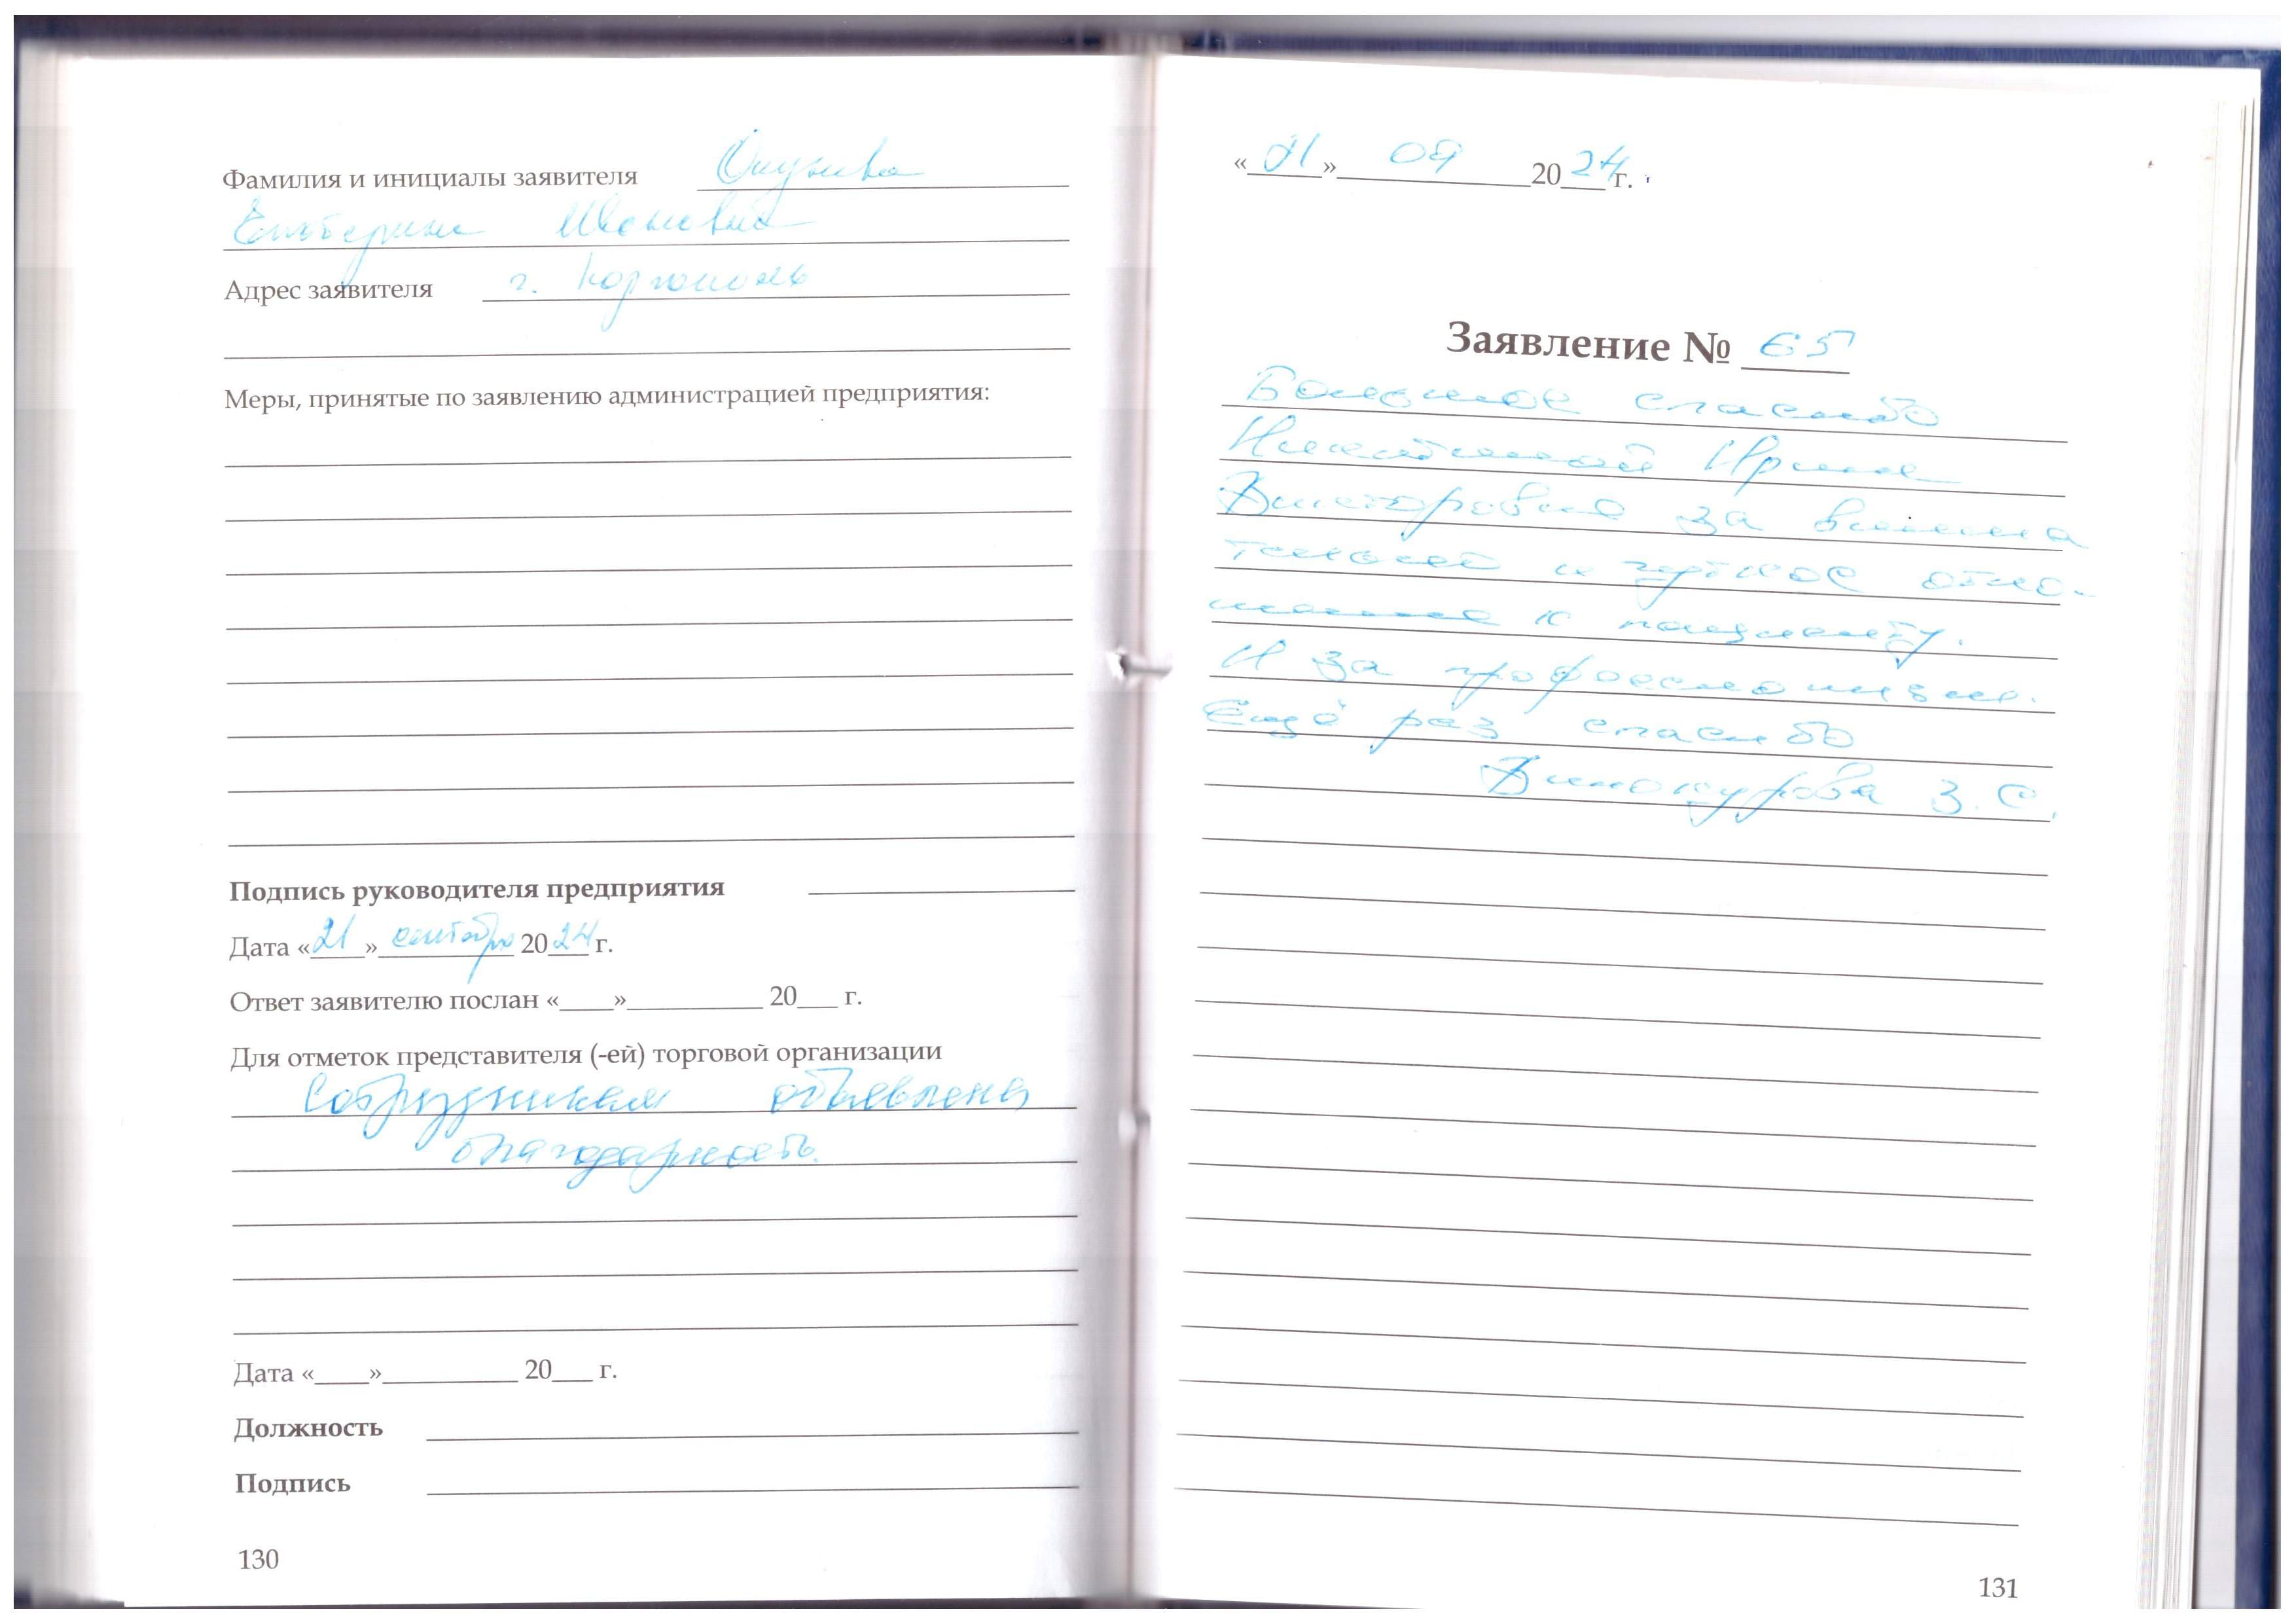 Фамилия и инициалы заявителя Окунева
Екатерина Ивановна
Адрес заявителя г. Каргополь
Меры, принятые по заявлению администрацией предприятия:
Подпись руководителя предприятия
Дата «21» сентября 2024 г.
Ответ заявителю послан «____»__________ 20___ г.
Для отметок представителя (-ей) торговой организации
Сотрудникам объявлена
благодарность.
Дата «____»__________ 20___ г.
Должность
Подпись
130
«21» 09 2024 г.
Заявление № 65
Большое спасибо
Никитиной Ирине
Викторовне за внима
тельное и чуткое отно-
шение к пациенту.
И за профессионализм.
Ещё раз спасибо
Винокурова З. С.
131